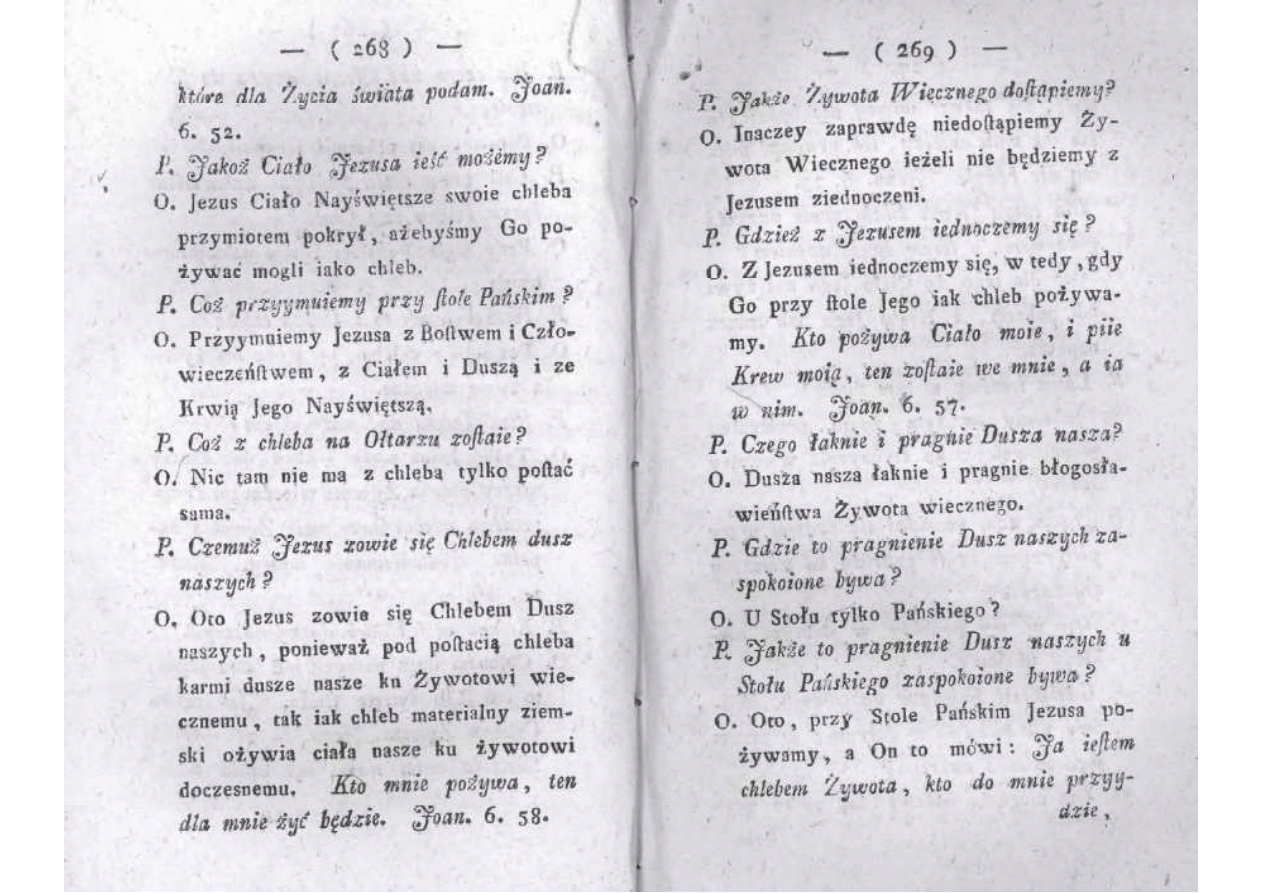 — ( 268 ) —
które dla Życia świata podam. Joan.
6. 52.
P. Jakoż Ciało Jezusa ieść możémy?
O. Jezus Ciało Nayświętsze swoie chleba
przymiotem pokrył, ażebyśmy Go po-
żywać mogli iako chleb.
P. Coż przyymuiemy przy ſtole Pańskim?
O. Przyymuiemy Jezusa z Boſtwem i Czło-
wieczeńſtwem, z Ciałem i Duszą i ze
Krwią Jego Nayświętszą.
P. Coż z chleba na Ołtarzu zoſtaie?
O. Nic tam nie ma z chleba tylko poſtać
sama.
P. Czemuż Jezus zowie się Chlebem dusz
naszych?
O. Oto Jezus zowie się Chlebem Dusz
naszych, ponieważ pod poſtacią chleba
karmi dusze nasze ku Żywotowi wie-
cznemu, tak iak chleb materialny ziem-
ski ożywia ciała nasze ku żywotowi
doczesnemu. Kto mnie pożywa, ten
dla mnie żyć będzie. Joan. 6. 58.
— ( 269 ) —
P. Jakże Żywota Wiecznego doſtąpiemy?
O. Inaczey zaprawdę niedoſtąpiemy Ży-
wota Wiecznego ieżeli nie będziemy z
Jezusem ziednoczeni.
P. Gdzież z Jezusem iednoczemy się?
O. Z Jezusem iednoczemy się, w tedy, gdy
Go przy ſtole Jego iak chleb pożywa-
my. Kto pożywa Ciało moie, i piie
Krew moią, ten zoſtaie we mnie, a ia
w nim. Joan. 6. 57.
P. Czego łaknie i pragnie Dusza nasza?
O. Dusza nasza łaknie i pragnie błogosła-
wieńſtwa Żywota wiecznego.
P. Gdzie to pragnienie Dusz naszych za-
spokoione bywa?
O. U Stołu tylko Pańskiego?
P. Jakże to pragnienie Dusz naszych u
Stołu Pańskiego zaspokoione bywa?
O. Oto, przy Stole Pańskim Jezusa po-
żywamy, a On to mówi: Ja ieſtem
chlebem Żywota, kto do mnie przyy-
dzie,